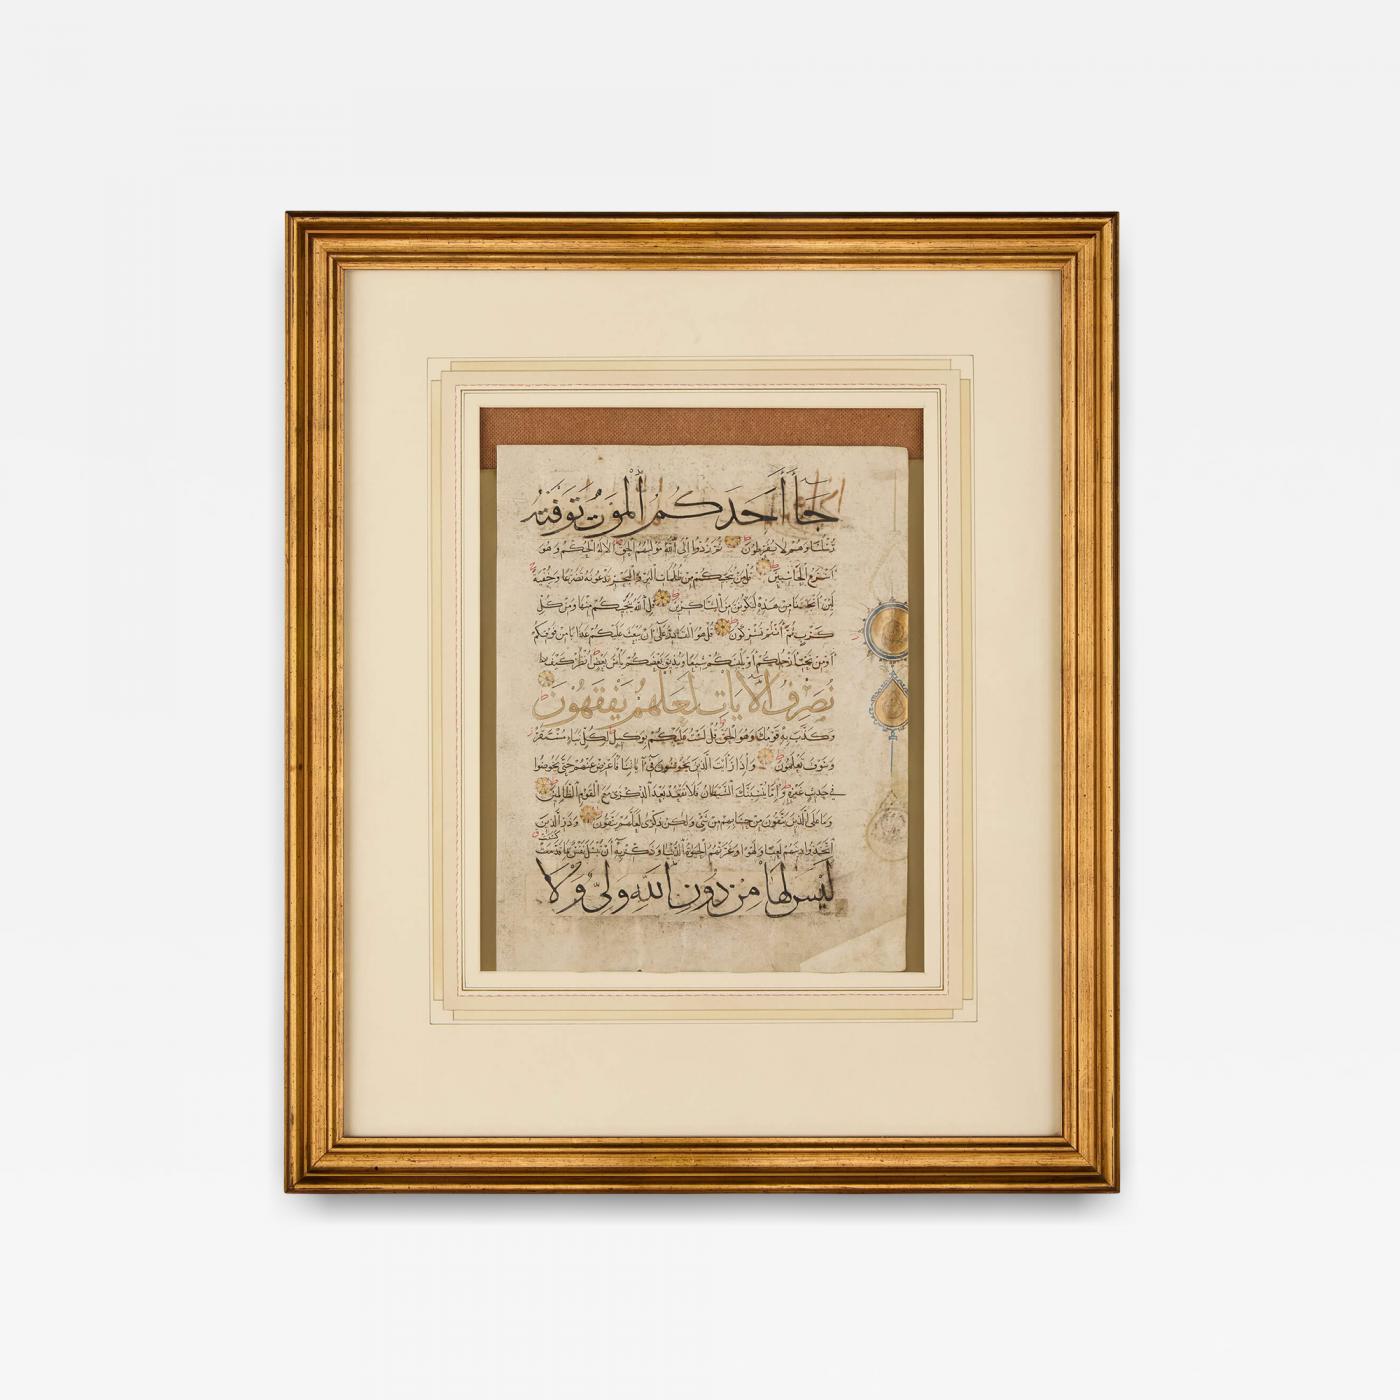 جَاءَ أَحَدَكُمُ الْمَوْتُ تَوَفَّتْهُ
رُسُلُنَا وَهُمْ لَا يُفَرِّطُونَ ثُمَّ رُدُّوا إِلَى اللَّهِ مَوْلَاهُمُ الْحَقِّ أَلَا لَهُ الْحُكْمُ وَهُوَ
أَسْرَعُ الْحَاسِبِينَ قُلْ مَنْ يُنَجِّيكُمْ مِنْ ظُلُمَاتِ الْبَرِّ وَالْبَحْرِ تَدْعُونَهُ تَضَرُّعًا وَخُفْيَةً
لَئِنْ أَنْجَيْتَنَا مِنْ هَذِهِ لَنَكُونَنَّ مِنَ الشَّاكِرِينَ قُلِ اللَّهُ يُنَجِّيكُمْ مِنْهَا وَمِنْ كُلِّ
كَرْبٍ ثُمَّ أَنْتُمْ تُشْرِكُونَ قُلْ هُوَ الْقَادِرُ عَلَى أَنْ يَبْعَثَ عَلَيْكُمْ عَذَابًا مِنْ فَوْقِكُمْ
أَوْ مِنْ تَحْتِ أَرْجُلِكُمْ أَوْ يَلْبِسَكُمْ شِيَعًا وَيُذِيقَ بَعْضَكُمْ بَأْسَ بَعْضٍ انْظُرْ كَيْفَ
نُصَرِّفُ الْآيَاتِ لَعَلَّهُمْ يَفْقَهُونَ
وَكَذَّبَ بِهِ قَوْمُكَ وَهُوَ الْحَقُّ قُلْ لَسْتُ عَلَيْكُمْ بِوَكِيلٍ لِكُلِّ نَبَإٍ مُسْتَقَرٌّ
وَسَوْفَ تَعْلَمُونَ وَإِذَا رَأَيْتَ الَّذِينَ يَخُوضُونَ فِي آيَاتِنَا فَأَعْرِضْ عَنْهُمْ حَتَّى يَخُوضُوا
فِي حَدِيثٍ غَيْرِهِ وَإِمَّا يُنْسِيَنَّكَ الشَّيْطَانُ فَلَا تَقْعُدْ بَعْدَ الذِّكْرَى مَعَ الْقَوْمِ الظَّالِمِينَ
وَمَا عَلَى الَّذِينَ يَتَّقُونَ مِنْ حِسَابِهِمْ مِنْ شَيْءٍ وَلَكِنْ ذِكْرَى لَعَلَّهُمْ يَتَّقُونَ وَذَرِ الَّذِينَ
اتَّخَذُوا دِينَهُمْ لَعِبًا وَلَهْوًا وَغَرَّتْهُمُ الْحَيَاةُ الدُّنْيَا وَذَكِّرْ بِهِ أَنْ تُبْسَلَ نَفْسٌ بِمَا كَسَبَتْ
لَيْسَ لَهَا مِنْ دُونِ اللَّهِ وَلِيٌّ وَلَا